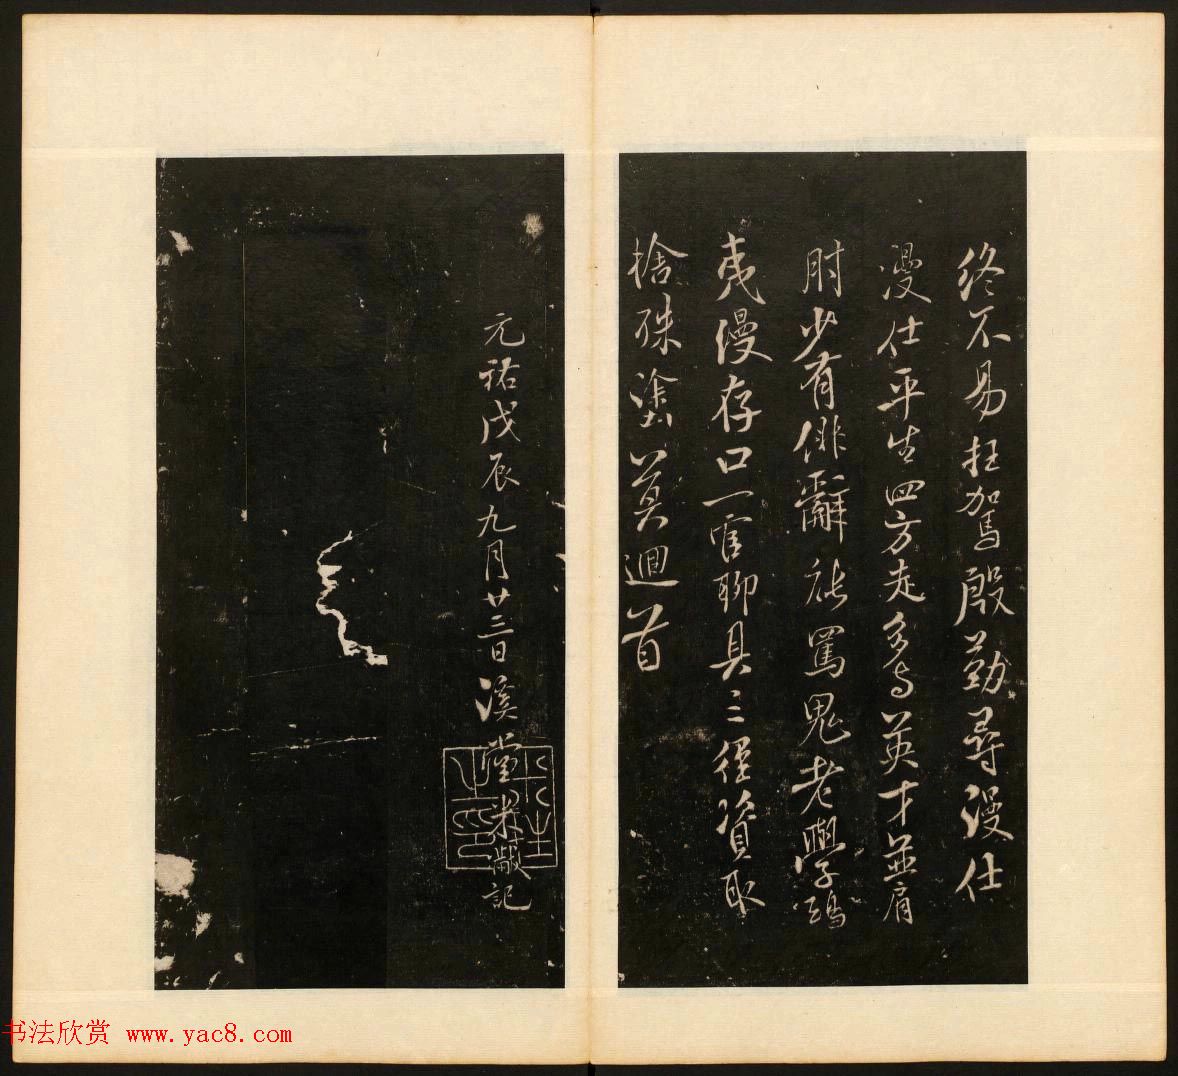 終不易枉駕殷勤尋漫仕
漫仕平生四方走多与英才並肩
肘少有俳辭能罵鬼老學鴟
夷漫存口一官聊具三徑資取
捨殊塗莫迴首
元祐戊辰九月廿三日溪堂米黻記
书法欣赏 www.yac8.com